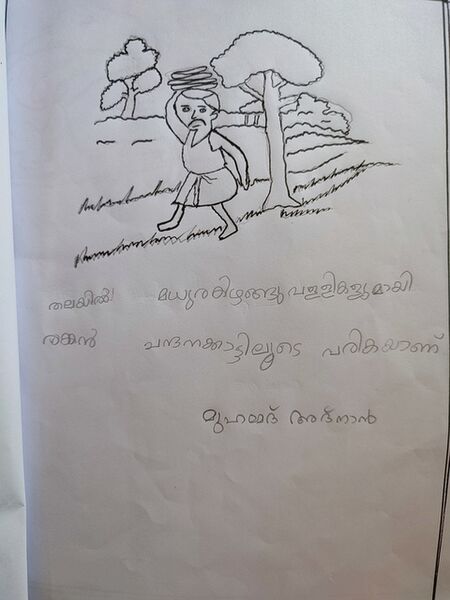 തലയിൽ മധുരകിഴങ്ങുവള്ളികളുമായി
രങ്കൻ ചന്ദനക്കാട്ടിലൂടെ വരികയാണ്
മുഹമ്മദ് അദ്നാൻ